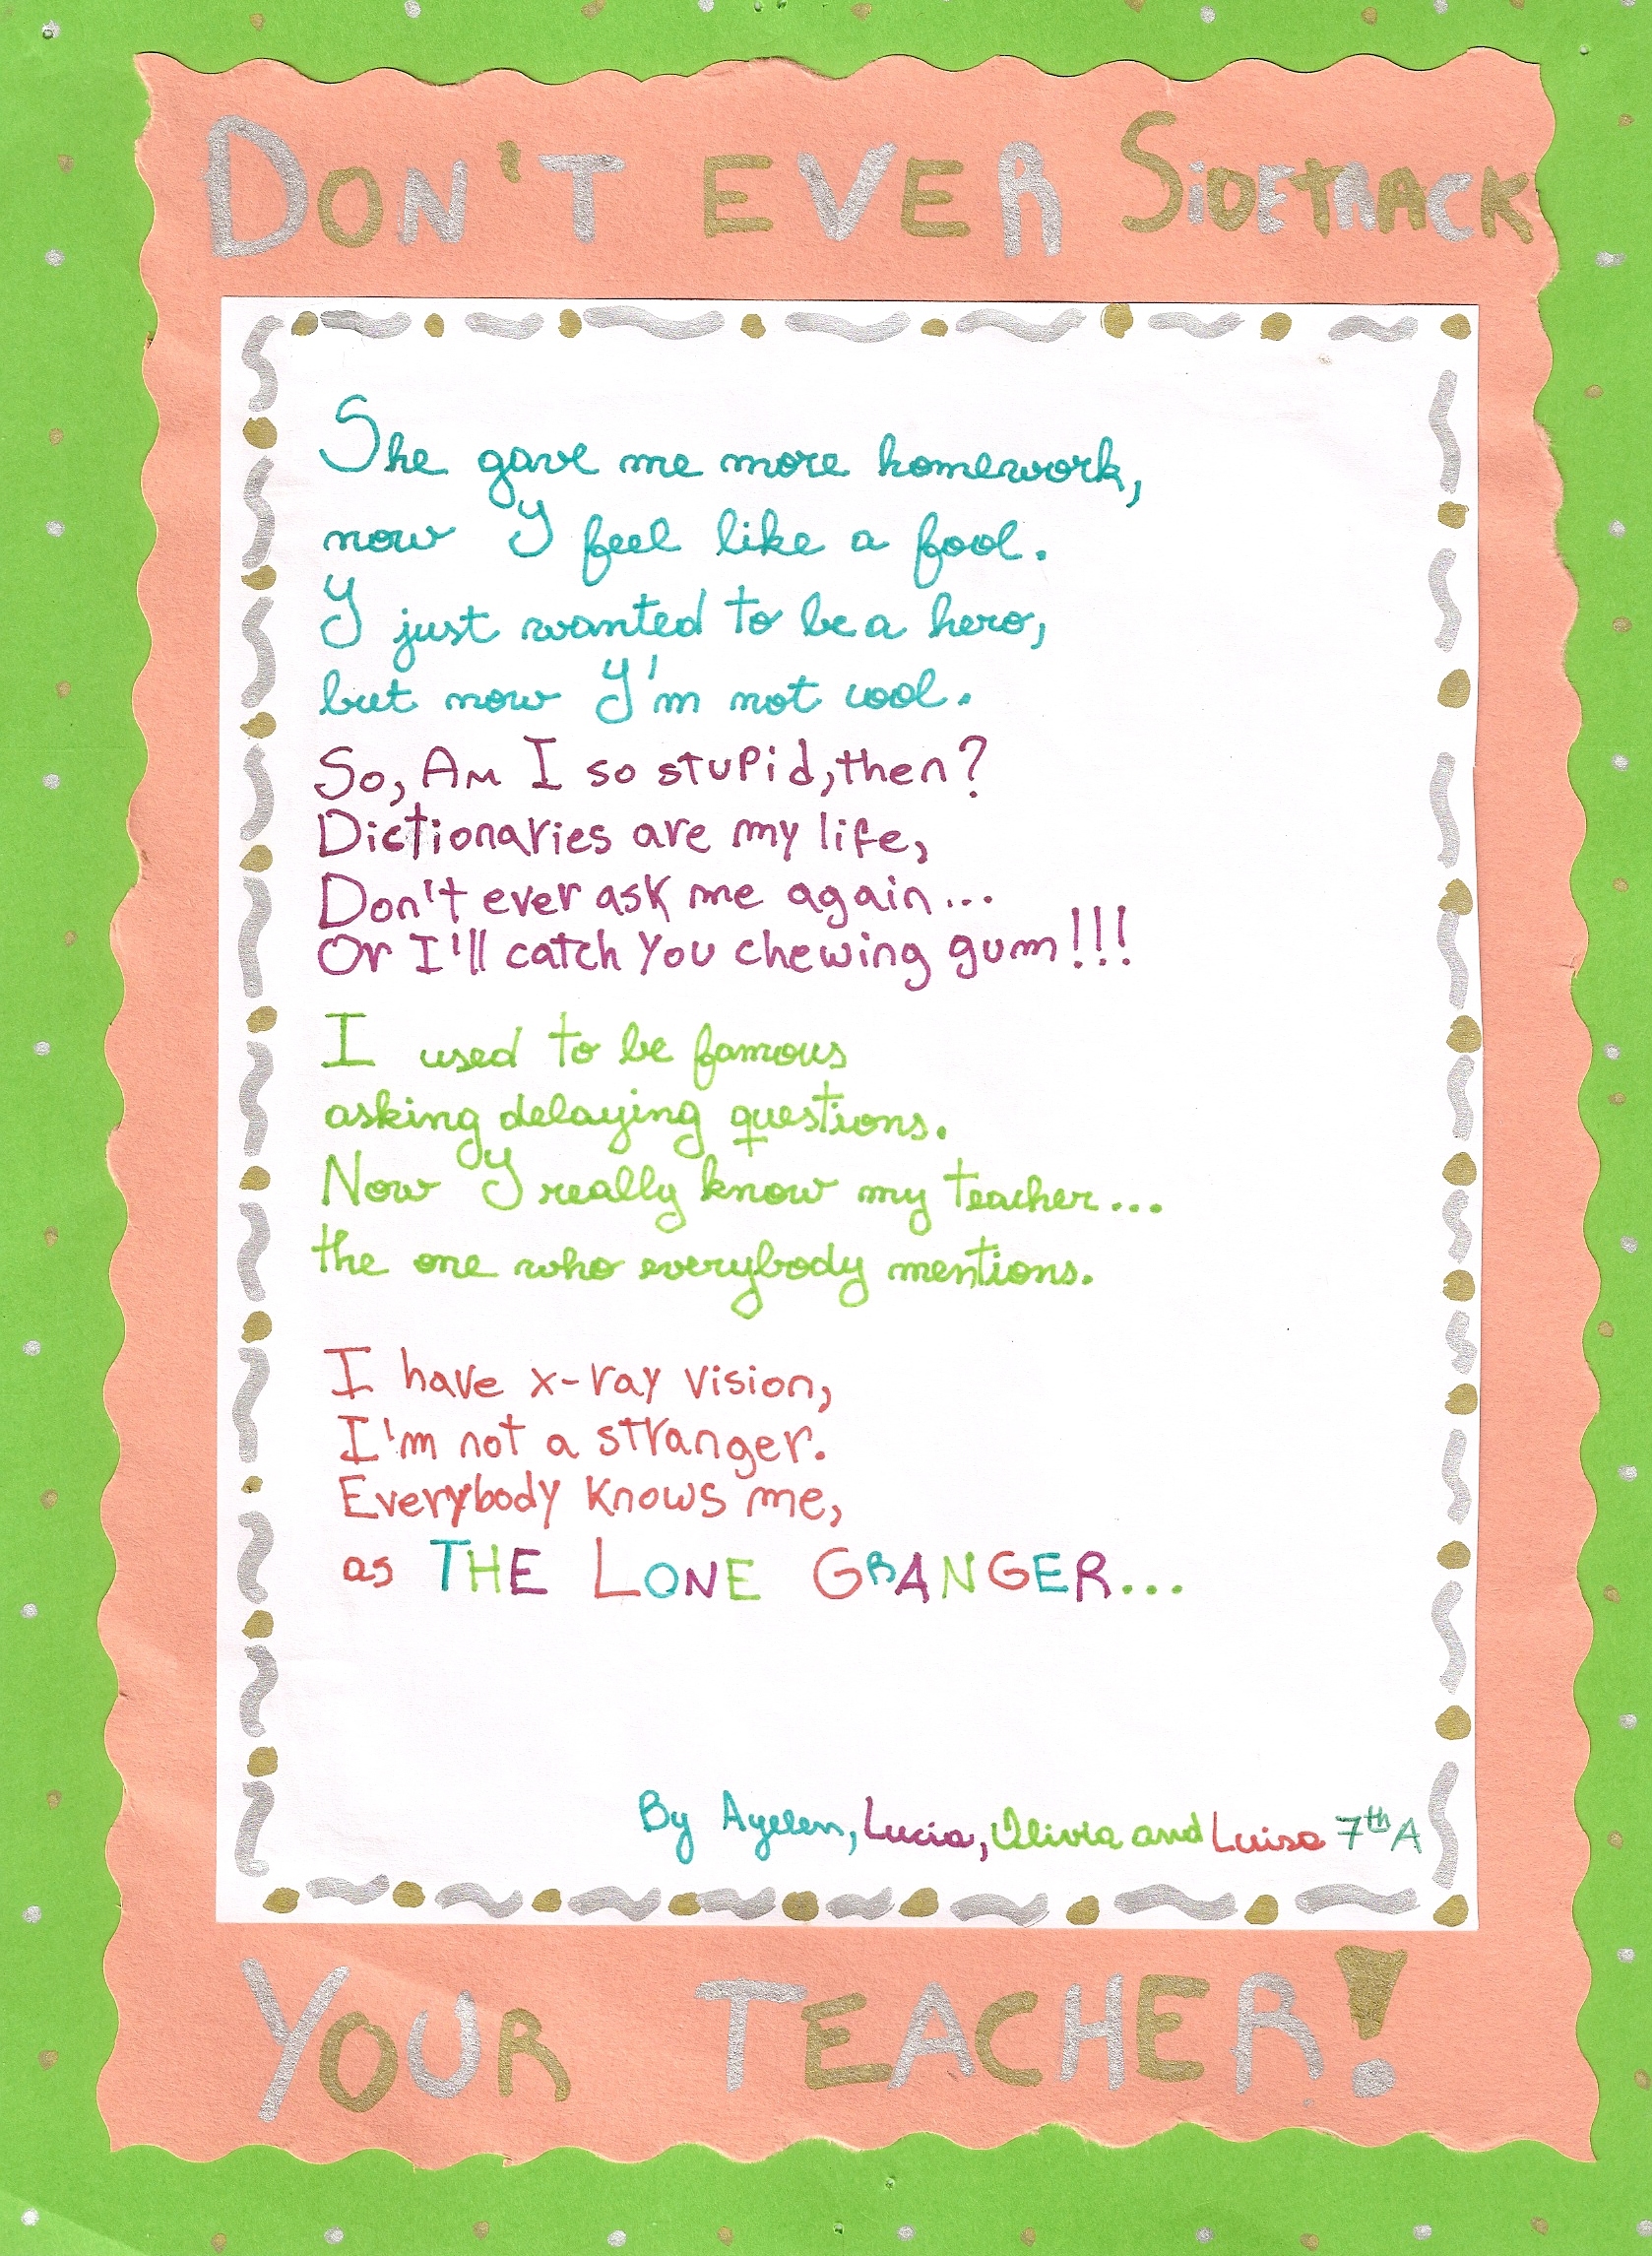 DON'T EVER SIDETRACK
She gave me more homework,
now I feel like a fool.
I just wanted to be a hero,
but now I'm not cool.
So, Am I so stupid, then?
Dictionaries are my life,
Don't ever ask me again...
Or I'll catch you chewing gum!!!
I used to be famous
asking delaying questions.
Now I really know my teacher...
the one who everybody mentions.
I have x-ray vision,
I'm not a stranger.
Everybody knows me,
as THE LONE GRANGER...
By Ayelen, Lucia, Olivia and Luisa 7th A
YOUR TEACHER!